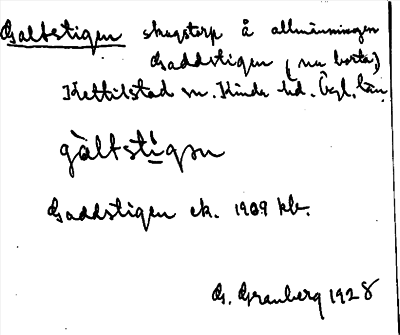 Galtstigen skogstorp å allmänningen
Gaddstigen (nu borta)
Kettilstad sn. Kinda hd. Ögl. län.
gàltsti̱gǝn
Gaddstigen ek. 1909 kb.
G. Granberg 1928